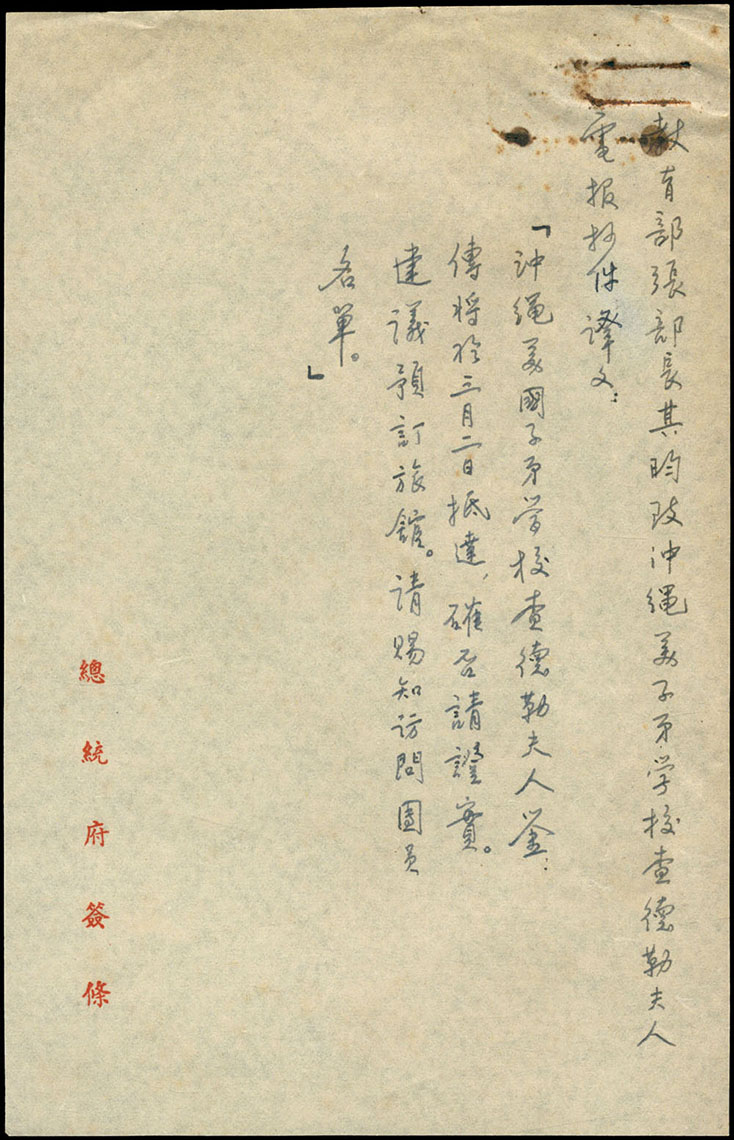 教育部張部長其昀致沖繩美子弟学校查德勒夫人
電報抄件譯文：
「沖繩美國子弟学校查德勒夫人鉴：
傳将於三月二日抵達，確否請證實。
建議預訂旅館。請賜知訪問團员
名單。」
總統府簽條